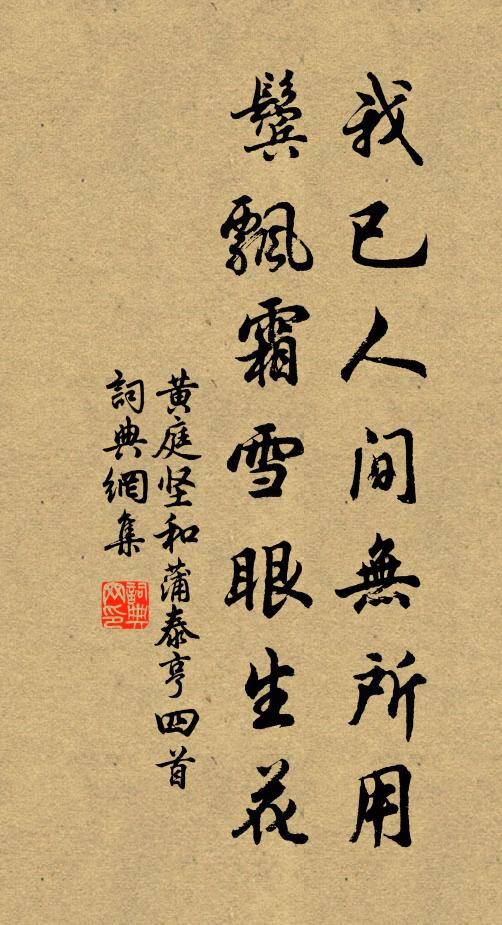 我已人间無所用
鬓飄霜雪眼生花
黄庭坚和蒲泰亨四首
詞典網集
詞典网印